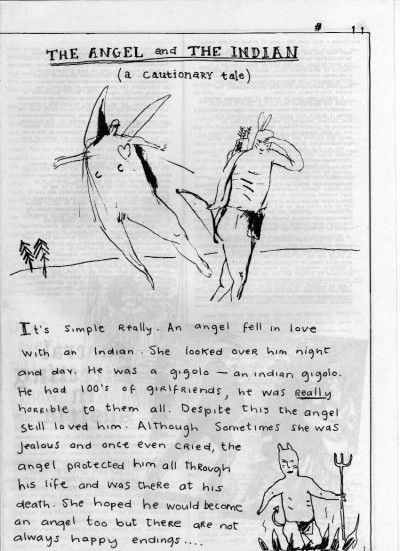 # 11
THE ANGEL and THE INDIAN
(a cautionary tale)
It's simple Really. An angel fell in love
with an Indian. She looked over him night
and day. He was a gigolo — an indian gigolo.
He had 100's of girlfriends, he was really
horrible to them all. Despite this the angel
still loved him. Although sometimes she was
jealous and once even cried, the
angel protected him all through
his life and was there at his
death. She hoped he would become
an angel too but there are not
always happy endings....